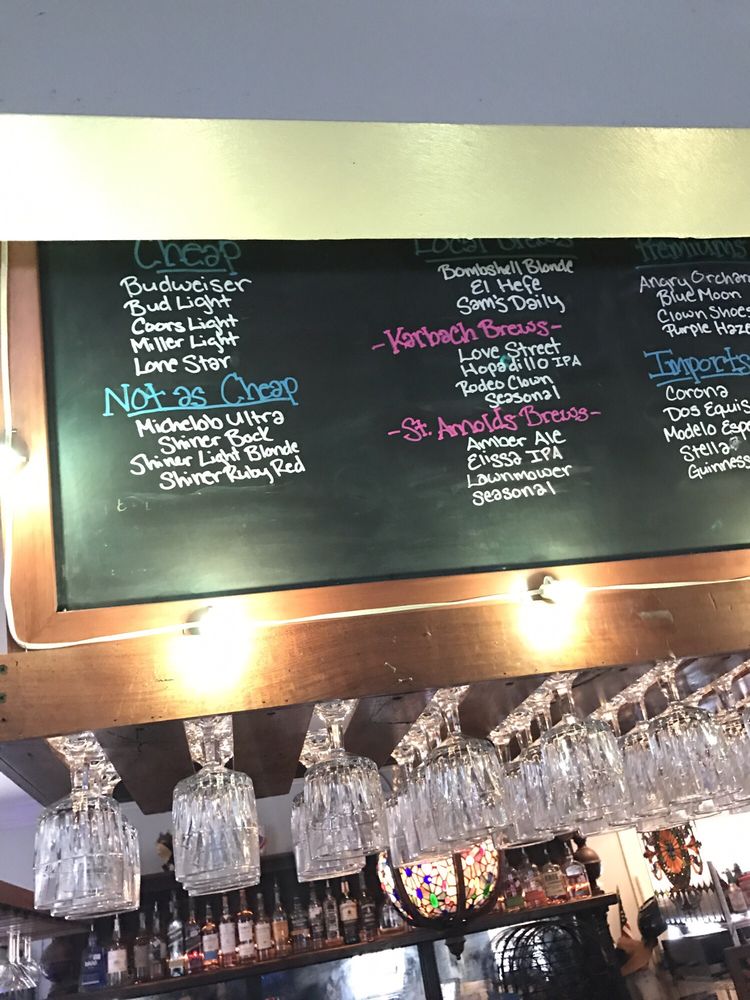 Cheap
Budweiser
Bud Light
Coors Light
Miller Light
Lone Star
Not as Cheap
Michelob Ultra
Shiner Bock
Shiner Light Blonde
Shiner Ruby Red
Local Brews
Bombshell Blonde
El Hefe
Sam's Daily
-Karbach Brews-
Love Street
Hopadillo IPA
Rodeo Clown
Seasonal
-St. Arnolds Brews-
Amber Ale
Elissa IPA
Lawnmower
Seasonal
Premiums
Angry Orchar
Blue Moon
Clown Shoes
Purple Haze
Imports
Corona
Dos Equis
Modelo Espe
Stella
Guinness